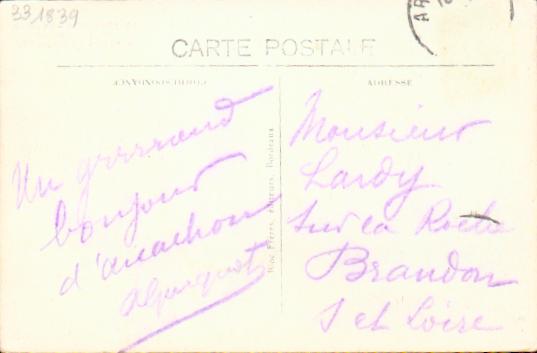 331839
AR
CARTE POSTALE
CORRESPONDANCE
ADRESSE
Un grrrrand
bonjour
d'arcachon
Monsieur
Lardy
Sur la Roche
Brandon
S et Loire
Frères, éditeurs, Bordeaux